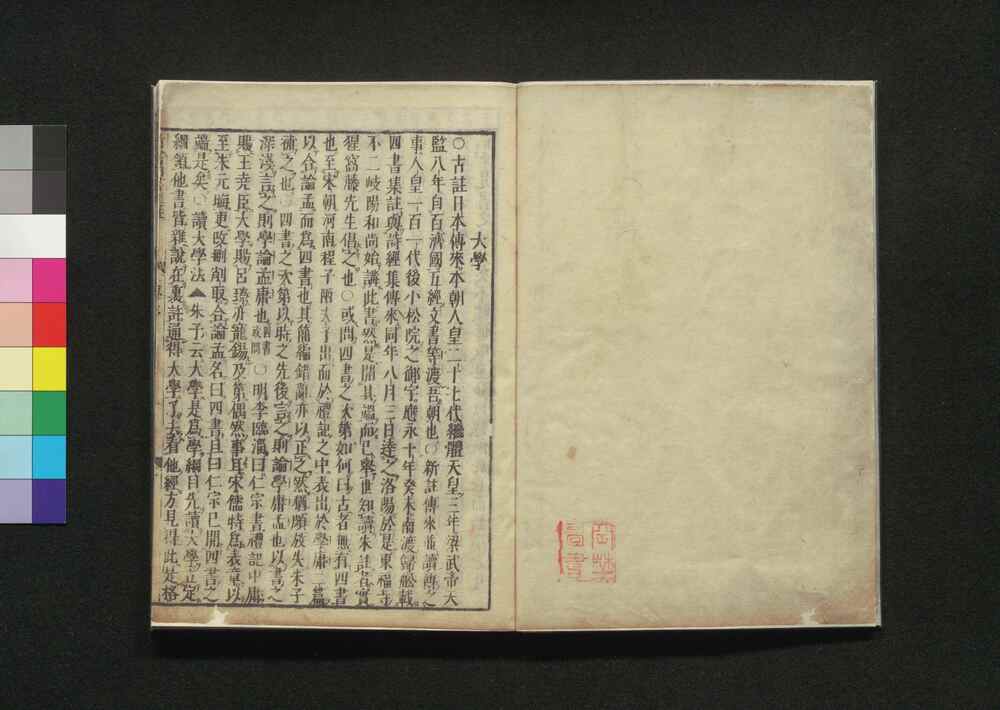 大學
○古註日本傳來本朝人皇二十七代繼體天皇三年梁武帝天
監八年自百濟國五經文書等渡吾朝也○新註傳來並讀傳之
事人皇一百一代後小松院之御宇應永十年癸未南渡歸船載
四書集註與詩經集傳來同年八月三日達之洛陽於是東福寺
不二岐陽和尚始講此書然是開其端而已舉世知讀朱註者實
猩窩藤先生倡之也○或問四書之次第如何曰古者無有四書
也至宋朝河南程子兩夫子出而於禮記之中表出於學庸二篇
以合論孟而爲四書也其簡編錯亂亦以正之然猶頗放失朱子
補之也○四書之次第以時之先後言之則論學庸孟也以書之
深淺言之則學論孟庸也四書或問○明李臨淄曰仁宗書禮記中庸
賜王尭臣大學賜呂臻亦寵錫及第偶然事耳宋儒特爲表章以
至朱元晦更改刪削取合論孟名曰四書且曰仁宗已開四書之
端是矣○讀大學法▲朱子云大學是爲學綱目先讀大學立定
綱領他書皆雜說在裏許通得大學了去看他經方見得此是格